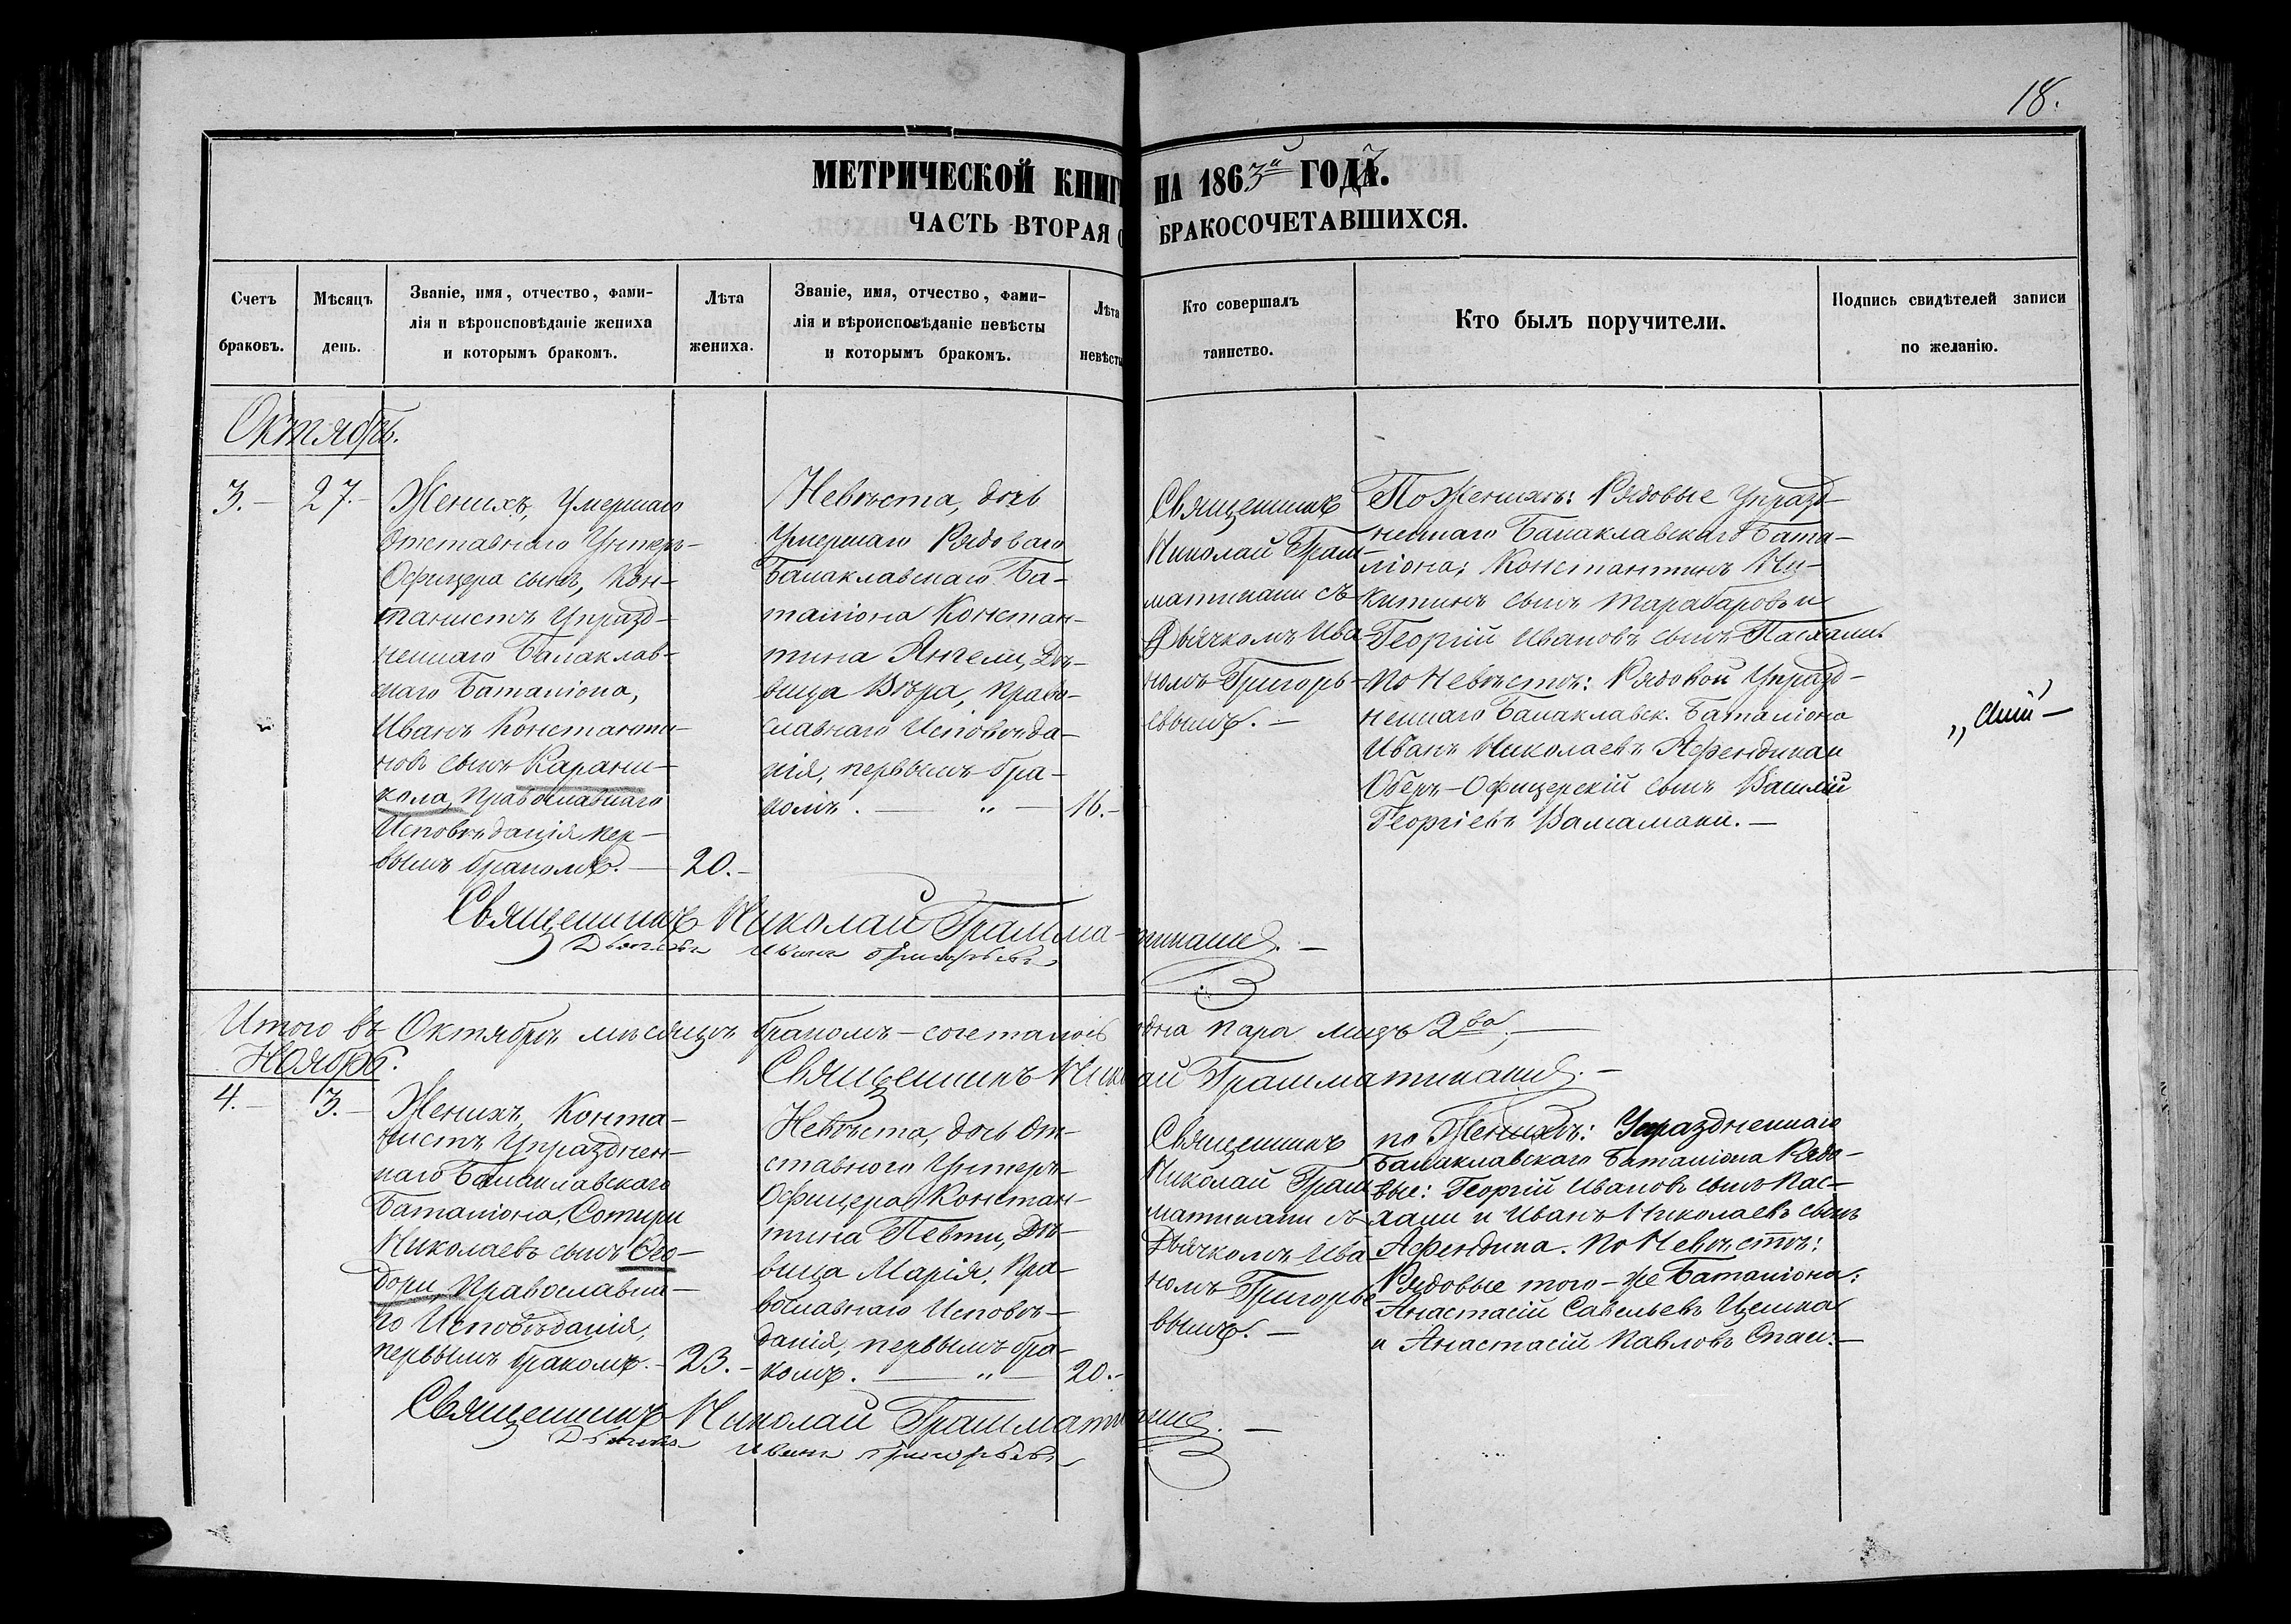 18.
МЕТРИЧЕСКОЙ КНИГ НА 1863й ГОДЪ.
ЧАСТЬ ВТОРАЯ О БРАКОСОЧЕТАВШИХСЯ.
Счетъ браковъ.
Мѣсяцъ день.
Званіе, имя, отчество, фами-
лія и вѣроисповѣданіе жениха
и которымъ бракомъ.
Лѣта
жениха.
Званіе, имя, отчество, фами-
лія и вѣроисповѣданіе невѣсты
и которымъ бракомъ.
Лѣта
невѣсты
Кто совершалъ
таинство.
Кто былъ поручители.
Подпись свидѣтелей записи
по желанію.
Октябрь.
3.— 27.—
Женихъ, Умершаго
Отставнаго Унтеръ-
Офицера сынъ, Кон-
танистъ Упразд-
неннаго Балаклав-
скаго Баталіона,
Иванъ Константи-
новъ сынъ Карани-
кола, православнаго
Исповѣданія пер-
вымъ бракомъ.— 20.—
Невѣста, дочь
Умершаго Рядоваго
Балаклавскаго Ба-
таліона Констан-
тина Ангели, Дѣ-
вица Вѣра, право-
славнаго Исповѣда-
нія, первымъ бра-
комъ. — „ — 16.—
Священникъ
Николай Грам-
матикати съ
Дьячкомъ Ива-
номъ Григорь-
евымъ.—
По Женихѣ: Рядовые Упразд-
неннаго Балаклавскаго Бата-
ліона: Константинъ Ни-
китинъ сынъ Тарабаровъ и
Георгій Ивановъ сынъ Пасхали.
По Невѣстѣ: Рядовой Упразд-
неннаго Балаклавск. Баталіона
Иванъ Николаевъ Афендика и
Оберъ-Офицерскій сынъ Василій
Георгіевъ
Священникъ Николай Грамматикати.—
Дьячекъ Иванъ Григорьевъ
Итого въ Октябрѣ мѣсяцѣ бракомъ-сочеталось одна пара лицъ 2ва.—
Священникъ Николай Грамматикати.—
Ноябрь.
4.— 3.—
Женихъ, Конта-
нистъ Упразднен-
наго Балаклавскаго
Баталіона, Сотири
Николаевъ сынъ Ѳео-
дори, Православна-
го Исповѣданія,
первымъ бракомъ.— 23.—
Невѣста, дочь От-
ставного Унтеръ-
Офицера Констан-
тина Певти, Дѣ-
вица Марія, Пра-
вославнаго Исповѣ-
данія, первымъ бра-
комъ. — „ — 20.—
Священникъ
Николай Грам-
матикати съ
Дьячкомъ Ива-
номъ Григорье-
вымъ.—
по Женихѣ: Упраздненнаго
Балаклавскаго Баталіона Рядо-
вые: Георгій Ивановъ сынъ Пас-
хали и Иванъ Николаевъ сынъ
Афендика. По Невѣстѣ:
Рядовые того-же Баталіона:
Анастасій Савельевъ
и Анастасій Павловъ Спаи.—
Священникъ Николай Грамматикати.—
Дьячекъ Иванъ Григорьевъ